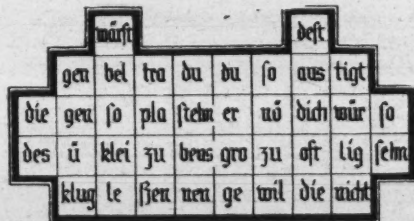 wärst dest
gen bel tra du du so aus tigt
die gen so pla stehn er nö dich wür so
des ü klei zu bens gro zu oft lig sehn
klug le ßen nen ge wil die nicht